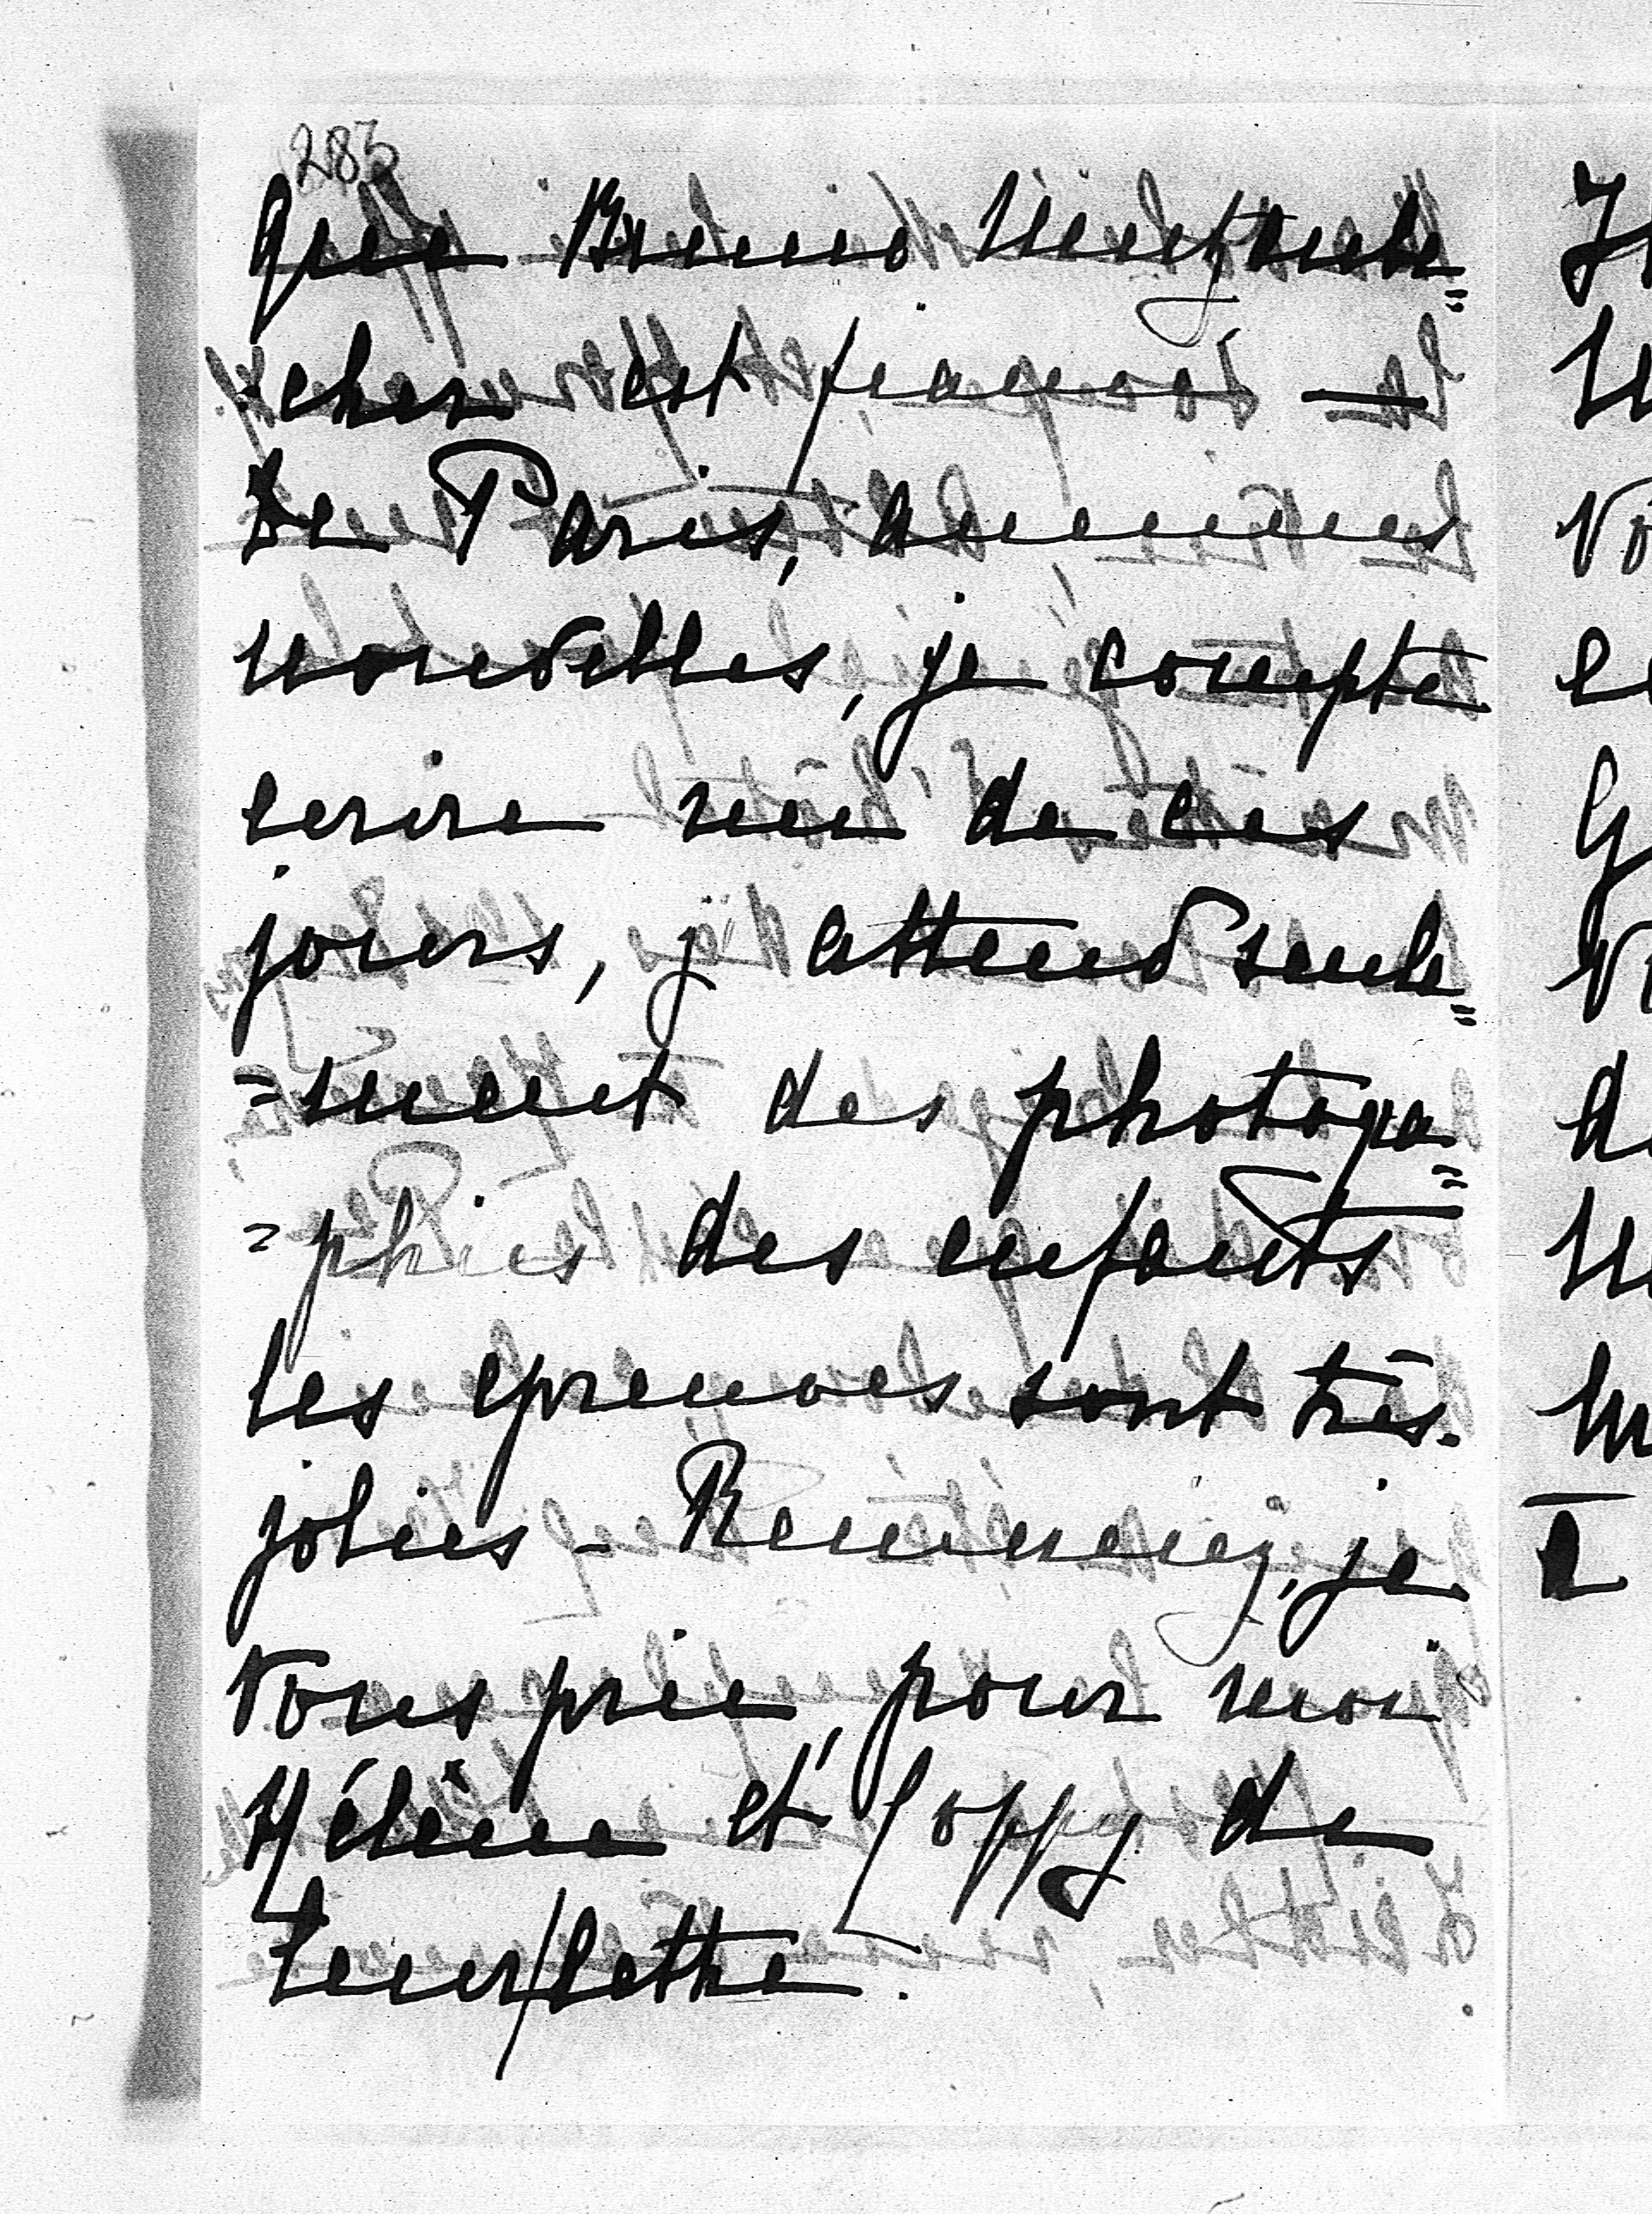 283
que Bruno
cher est fiancé —
De Paris, aucunes
nouvelles, je compte
ecrire un de ces
jours, j attend seule=
=ment des photogra=
=phies des enfants
les epreuves sont très
jolies - Remerciez, je
vous prie, pour moi
Hélène et Loppy de
leur lettre.